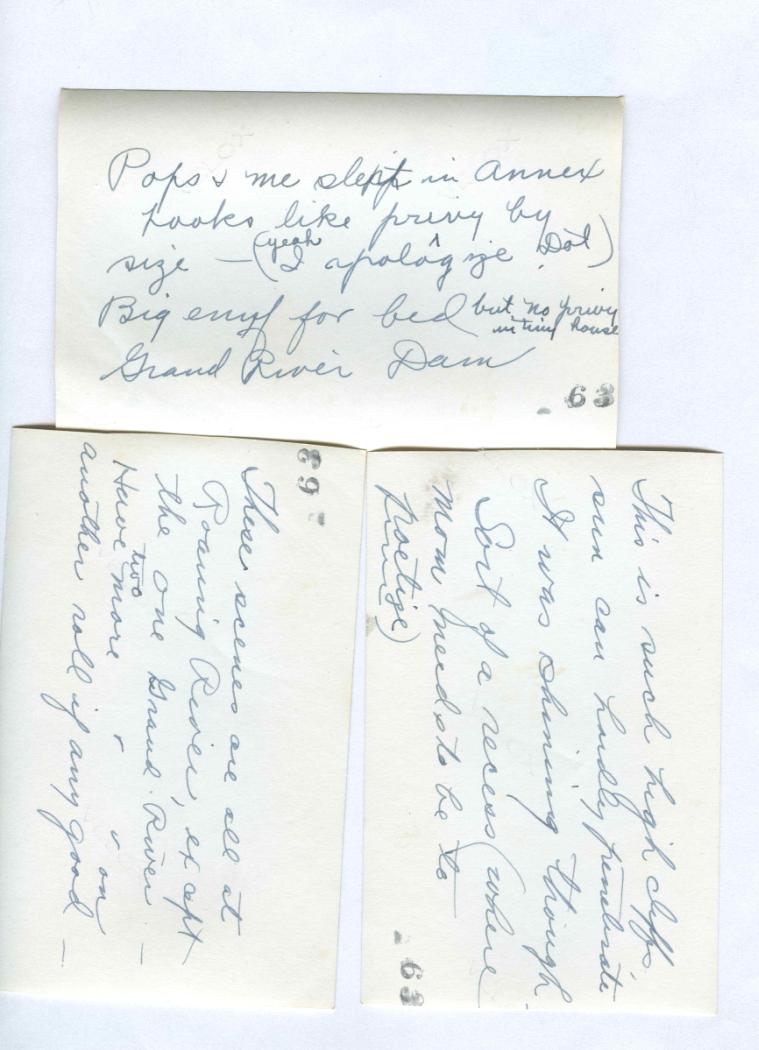 Pops & me slept in Annex
Looks like privy by
size — (yeah I apologize Dot)
Big enuf for bed but no privy
in tiny house
Grand River Dam
63
63
These scenes are all at
Roaring River, except
the one Grand River —
Have two more on
another roll if any good —
This is such high cliffs,
sun can hardly penetrate
It was shining though.
Sort of a recess (where
Mom needs to be to
poetize)
63